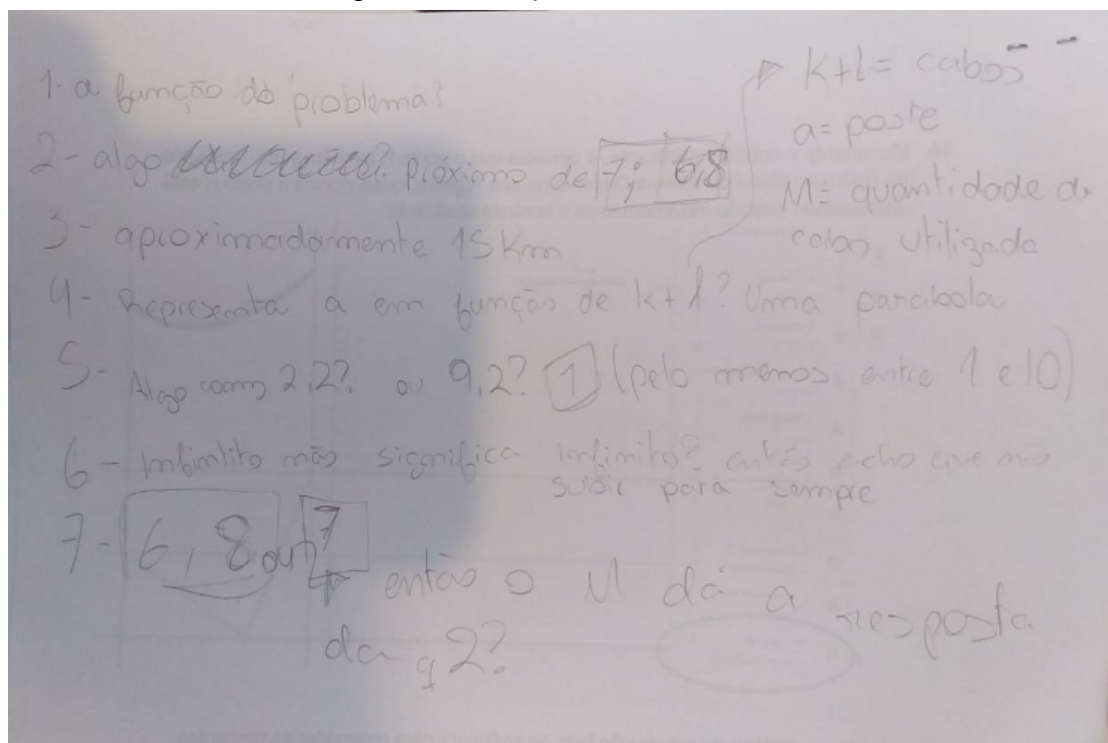 1. a função do problema?
2 - algo próximo de 7; 6,8
3 - aproximadamente 15 Km
4 - Representa a em função de k+l? Uma parabola
5 - Algo como 2,2? ou 9,2? 1 (pelo menos entre 1 e 10)
6 - Infintito não significa infinito? então acho que não
subir para sempre
7 - 6,8 ou 7
então o M dá a resposta
da q 2?
k+l = cabos
a = poste
M = quantidade de
cabos utilizada